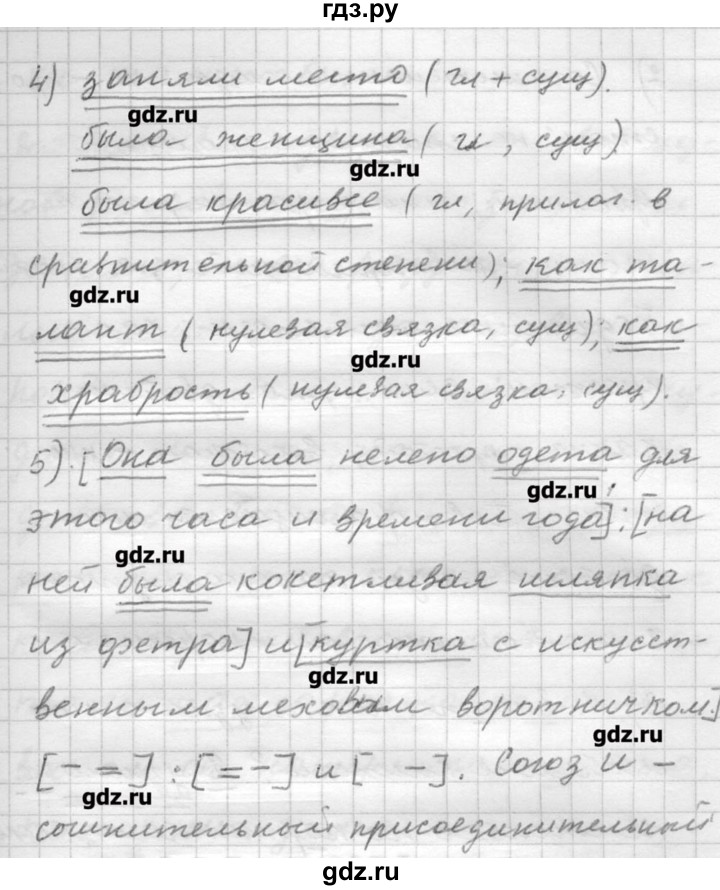 гдз.ру
4) заняли место (гл + сущ).
gdz.ru
была женщина (гл, сущ)
gdz.ru
была красивее (гл, прилаг. в
сравнительной степени); как та-
gdz.ru
лант (нулевая связка, сущ); как
gdz.ru
храбрость (нулевая связка, сущ).
5). [Она была нелепо одета для
gdz.ru
этого часа и времени года]: [на
gdz.ru
ней была кокетливая шляпка
из фетра] и [куртка с искусст-
gdz.ru
венным меховым воротничком]
gdz.ru
[- =]:[= -] и [ -]. Союз и -
gdz.ru
сочинительный присоединительный
gdz.ru